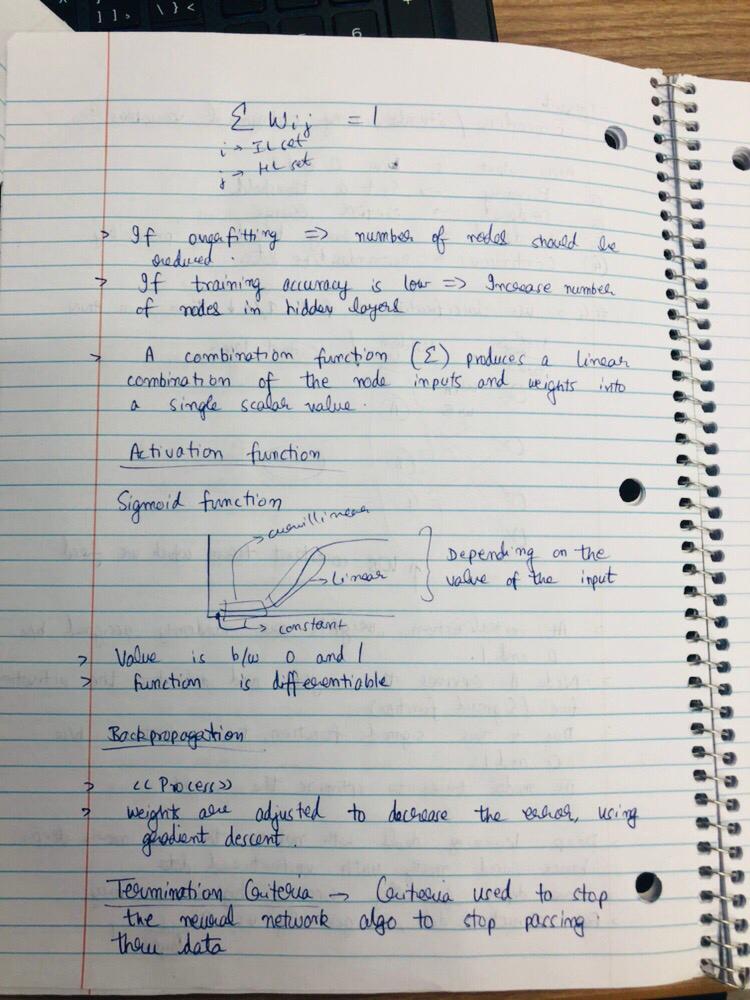 Σ Wij = 1
i → IL set
j → HL set
> If overfitting => number of nodes should be
reduced.
> If training accuracy is low => Increase number
of nodes in hidden layers
> A combination function (Σ) produces a linear
combination of the node inputs and weights into
a single scalar value.
Activation function
Sigmoid function
→ curvillinear
→ Linear
→ constant
} Depending on the
value of the input
> Value is b/w 0 and 1
> function is differentiable
Backpropagation
> << Process >>
> weights are adjusted to decrease the error, using
gradient descent.
Termination Criteria → Criteria used to stop
the neural network algo to stop passing
thru data